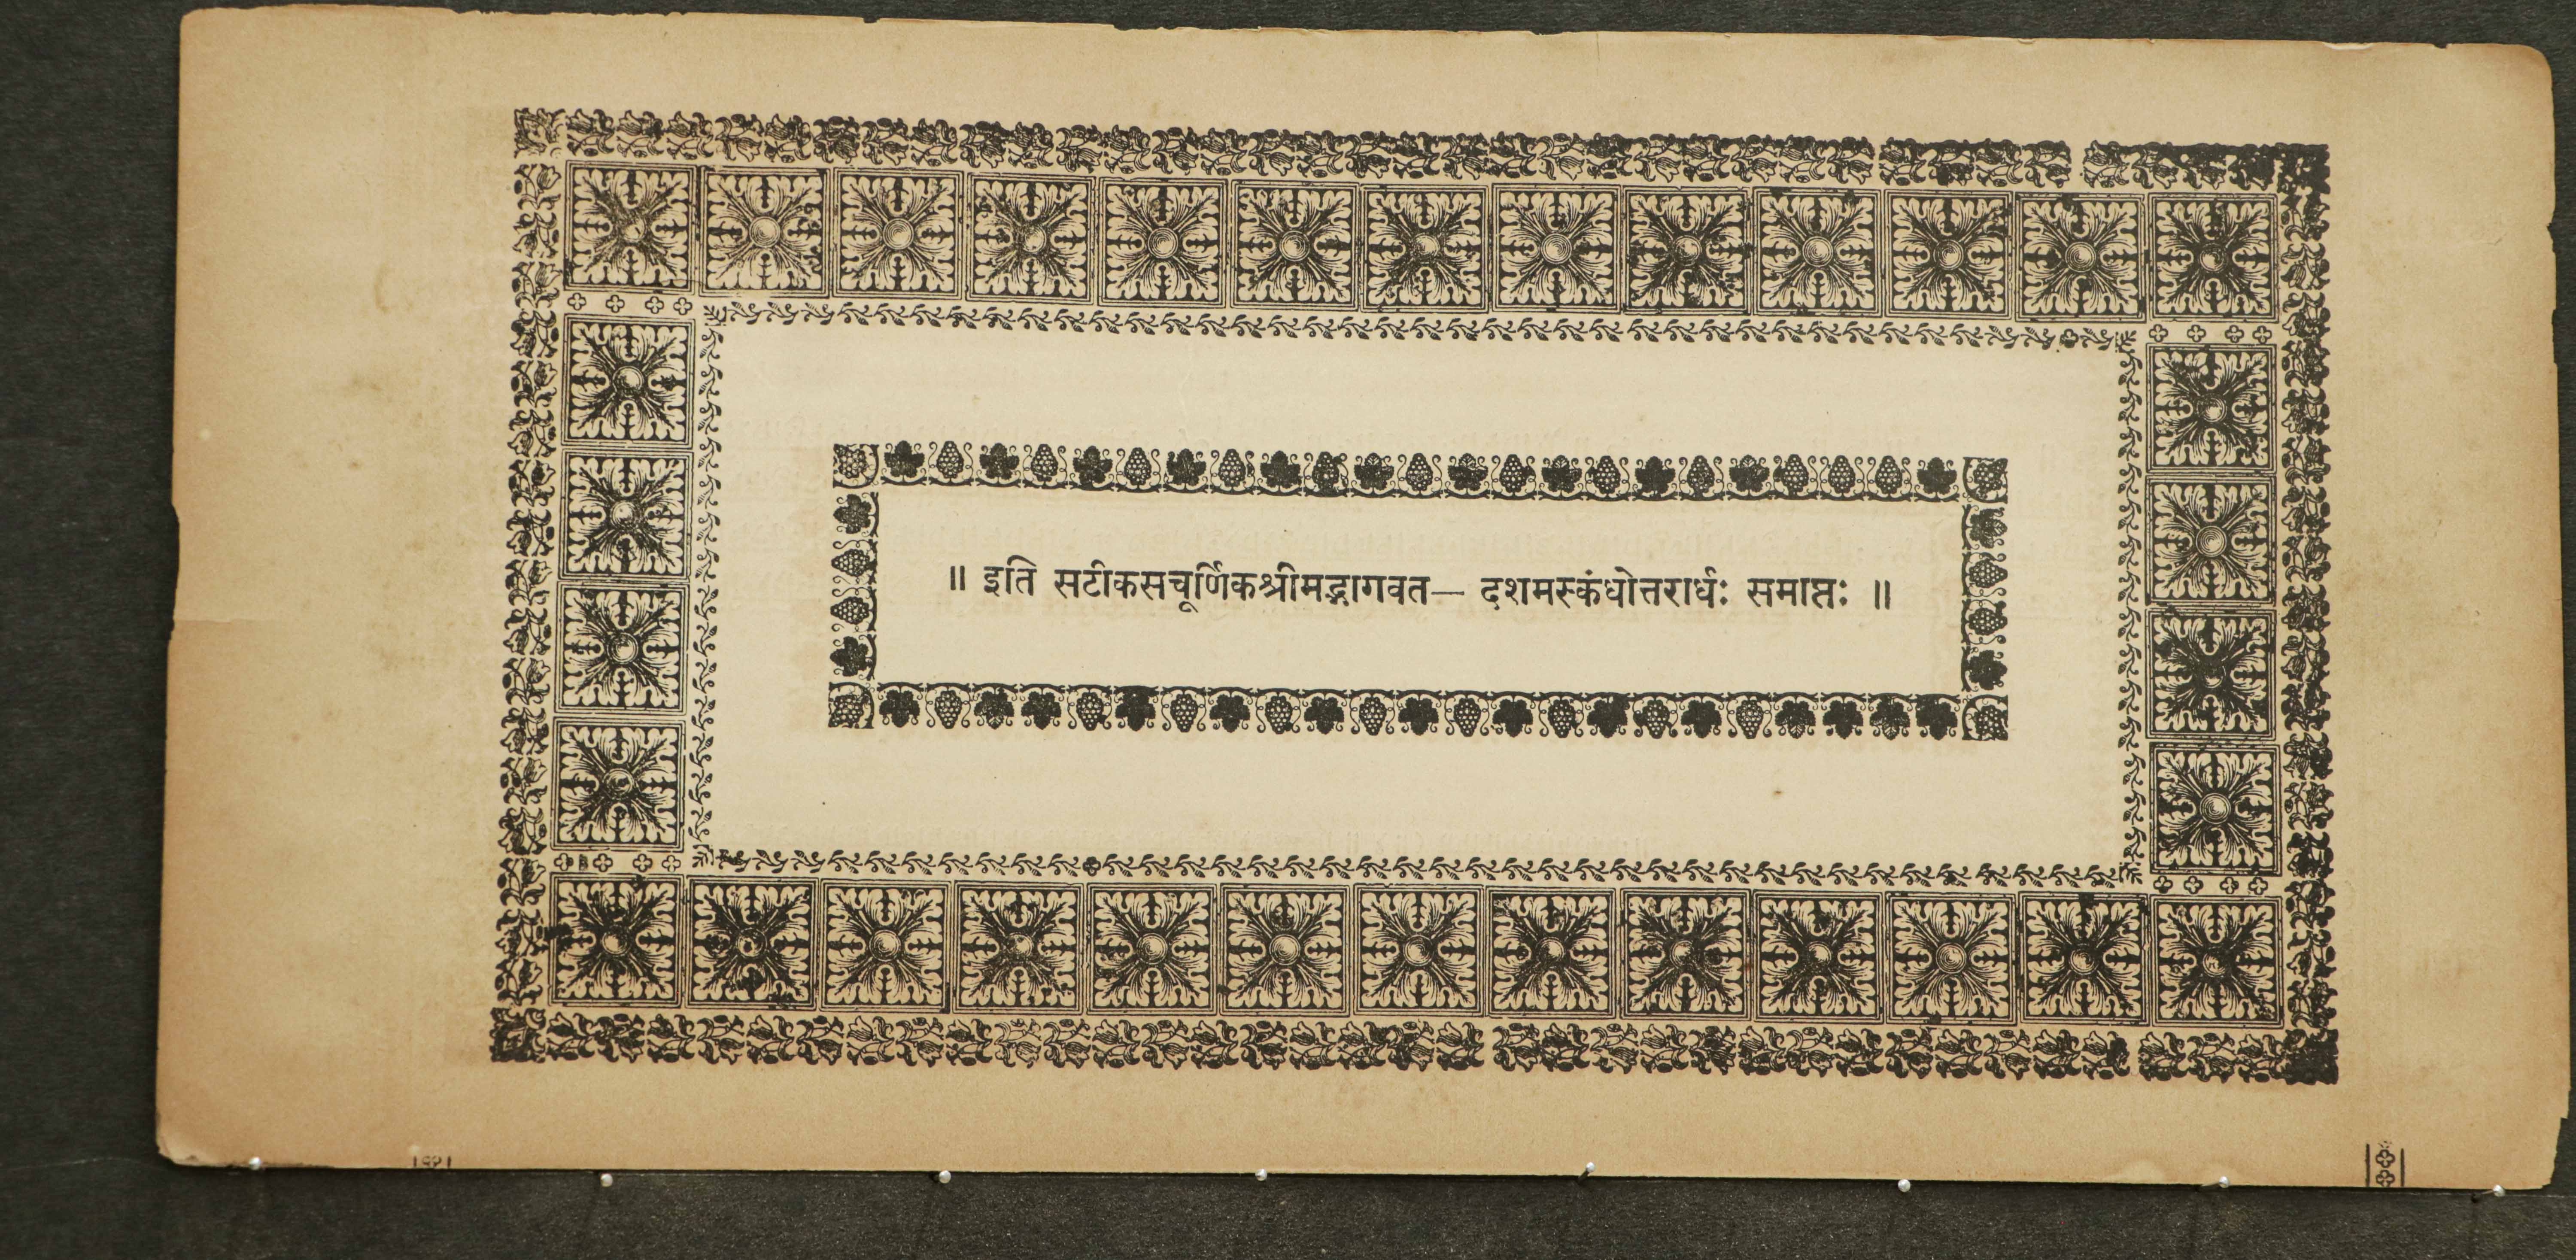 ॥ इति सटीकसचूर्णिकश्रीमद्भागवत— दशमस्कंधोत्तरार्धः समाप्तः ॥